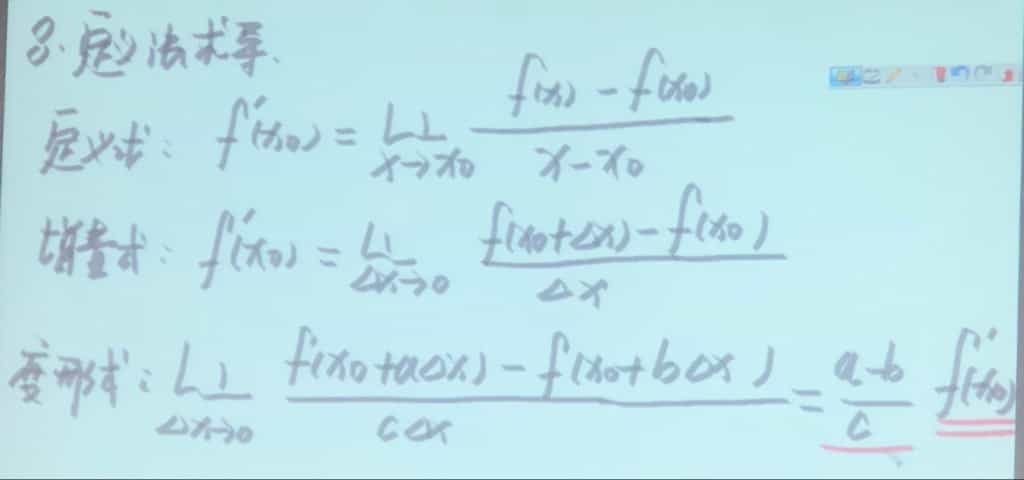 3. 定义法求导.
定义式: f'(x₀) = Li_{x→x₀} \frac{f(x) - f(x₀)}{x - x₀}
增量式: f'(x₀) = Li_{Δx→0} \frac{f(x₀+Δx) - f(x₀)}{Δx}
变形式: Li_{Δx→0} \frac{f(x₀+aΔx) - f(x₀+bΔx)}{cΔx} = \frac{a-b}{c} f'(x₀)